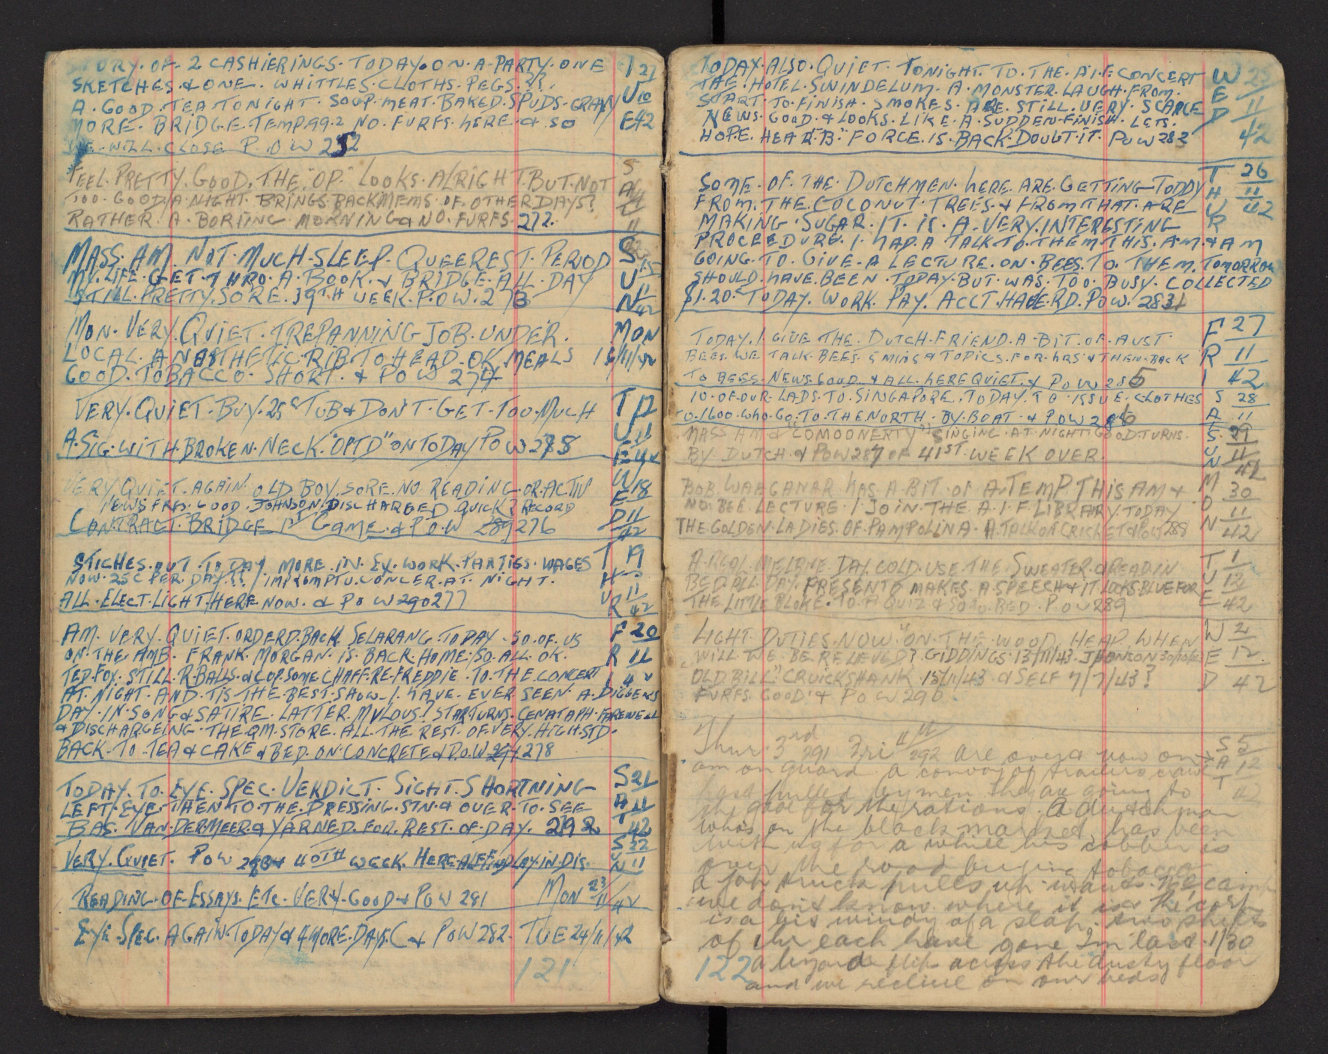 ORY. OF. 2 CASHIERINGS. TODAY. ON. A. PARTY. ONE T 21
SKETCHES. & ONE. WHITTLES. CLOTHS. PEGS. U 10
A. GOOD. TEA TONIGHT. SOUP. MEAT. BAKED. SPUDS. GRAVY E 42
MORE. BRIDGE. TEMP 99.2 NO. FURFS. HERE. & SO
WE. WILL. CLOSE P.O.W 252
FEEL. PRETTY. GOOD. THE "OP." LOOKS. ALRIGHT. BUT. NOT S
TOO. GOOD. A NIGHT. BRINGS. BACK MEMS. OF. OTHER DAYS? A
RATHER. A. BORING MORNING & NO. FURFS. 272.
MASS. AM. NOT. MUCH. SLEEP. QUEEREST. PERIOD S
MY. LIFE. GET. THRO. A. BOOK. & BRIDGE. ALL. DAY U
STILL. PRETTY. SORE. 39TH WEEK. P.O.W. 273 N
MON. VERY. QUIET. TREPANNING JOB. UNDER. MON
LOCAL. ANASTHETIC RIB TO HEAD. OK. MEALS 16/11/42
GOOD. TOBACCO. SHORT. & POW 274
VERY. QUIET. BUY. 25C TUB & DON'T. GET. TOO. MUCH T 17
U 11
A. SIG. WITH BROKEN. NECK "OPTD" ON TODAY POW 275 E 42
VERY. QUIET. AGAIN. OLD BOY. SORE. NO READING. OR. ACTIV W 18
NEWS FRS. GOOD. JOHNSON. DISCHARGED QUICK? RECORD E
CONTRACT. BRIDGE 1ST GAME. & POW 276 D 11 42
STICHES. OUT. TODAY. MORE. IN. EX. WORK. PARTIES. WAGES T 19
NOW. 25C PER. DAY?? IMPROMPTU. CONCER. AT. NIGHT. H
ALL. ELECT. LIGHT. HERE. NOW. & POW 277 U 11 R 42
AM. VERY. QUIET. ORDERD. BACK. SELARANG. TODAY. SO. OF. US F 20
ON. THE AMB. FRANK. MORGAN. IS. BACK HOME. SO. ALL. OK. R 11
TED. FOX. STILL. R. BALLS. & COP SOME CHAFF. RE. FREDDIE. TO. THE. CONCERT I 42
AT. NIGHT. AND. TIS. THE. BEST. SHOW. I. HAVE. EVER SEEN. A. DIGGERS
DAY. IN. SONG & SATIRE. LATTER. MVLOUS! STAR TURNS. CENATAPH. FAREWELL
& DISCHARGEING. THE QM. STORE. ALL. THE REST. OF VERY. HIGH. STD.
BACK. TO. TEA & CAKE & BED. ON CONCRETE & P.O.W. 278
TODAY. TO. EYE. SPEC. VERDICT. SIGHT. SHORTNING S 21
LEFT. EYE. THEN TO. THE. DRESSING. STN & OVER. TO. SEE A 11
BAS. VAN. DERMEER. & YARNED. FOR. REST. OF. DAY. T 42
VERY. QUIET. POW 40TH WEEK HERE. S 22 N 11
READING. OF. ESSAYS. ETC. VERY. GOOD & POW 281 MON 23/11/42
EYE SPEC. AGAIN TODAY & 4 MORE. DAYS. C & POW 282. TUE 24/11/42
121
TODAY. ALSO. QUIET. TONIGHT. TO. THE. A.I.F. CONCERT W 25
THE. HOTEL. SWINDELUM. A. MONSTER. LAUGH. FROM. E
START. TO. FINISH. SMOKES. ARE. STILL. VERY. SCARCE 11
NEWS. GOOD. & LOOKS. LIKE. A. SUDDEN. FINISH. LETS. D
HOPE. HEAR "B" FORCE. IS. BACK. DOUBT IT POW 283 42
SOME. OF. THE DUTCHMEN. HERE. ARE. GETTING. TODDY T 26
FROM. THE. COCONUT. TREES. & FROM THAT. ARE H 11
MAKING. SUGAR. IT. IS. A. VERY. INTERESTING U 42
PROCEEDURE. I. HAD. A TALK. TO. THEM THIS. AM & AM R
GOING. TO. GIVE. A LECTURE. ON. BEES. TO. THEM. TOMORROW
SHOULD. HAVE. BEEN. TODAY. BUT. WAS. TOO. BUSY. COLLECTED
$1.20. TODAY. WORK. PAY. ACCT. HAVERD. POW. 284
TODAY. I GIVE. THE. DUTCH. FRIEND. A. BIT. OF. AUST F 27
BEES. WE. TALK. BEES. & MING & TOPICS. FOR. HRS & THEN. BACK R 11
TO BEES. NEWS. GOOD. & ALL. HERE QUIET. & POW 285 I 42
10. OF. OUR. LADS. TO. SINGAPORE. TODAY. TO. ISSUE. CLOTHES S 28
TO. 1600. WHO. GO. TO. THE NORTH. BY. BOAT. & POW 286 A 11
MASS AM & "COMOONERTY" SINGING. AT. NIGHT. GOOD. TURNS. S 29
BY DUTCH & POW 287 OF 41ST. WEEK OVER. N 42
BOB. WARGANAR HAS A BIT. OF A. TEMP THIS AM & M 30
NO. BEE. LECTURE. I JOIN. THE A.I.F LIBRARY. TODAY O 11
THE GOLDEN. LADIES. OF. PAMPOLINA. A. TALK ON CRICKET & POW 288 N 42
A. REAL MELBNE. DAY. COLD. USE THE. SWEATER. & READ IN T 1
BED. ALL DAY. PRESENTO MAKES. A SPEECH & IT. LOOKS BLUE FOR U 12
THE LITTLE BLOKE. TO. A QUIZ & SO TO. BED. POW 289 E 42
LIGHT DUTIES. NOW "ON THE. WOOD, HEAP. WHEN W 2
WILL WE BE RELEVED? GIDDINGS. 13/11/43. JOHNSON 30/10/43 E 12
OLD BILL" CRUICKSHANK 15/11/43 & SELF 7/7/43? D 42
FURFS GOOD & POW 290
Thur. 3rd 291 Fri 292 are over & now on S 5
am on guard. a convoy of trailers A 12
hand pulled by men they are going to T 42
the gaol for the rations. A dutchman
who's on the black market has been
with us for a while his cobber is
over the road buying tobacco
a Jap truck pulls up near the camp
we dont know where it is. the cost
is a bit windy of a slap. two shifts
of 1hr each have gone I'm last. 1/30
a lizard flips across the dusty floor
and we recline on our beds
122